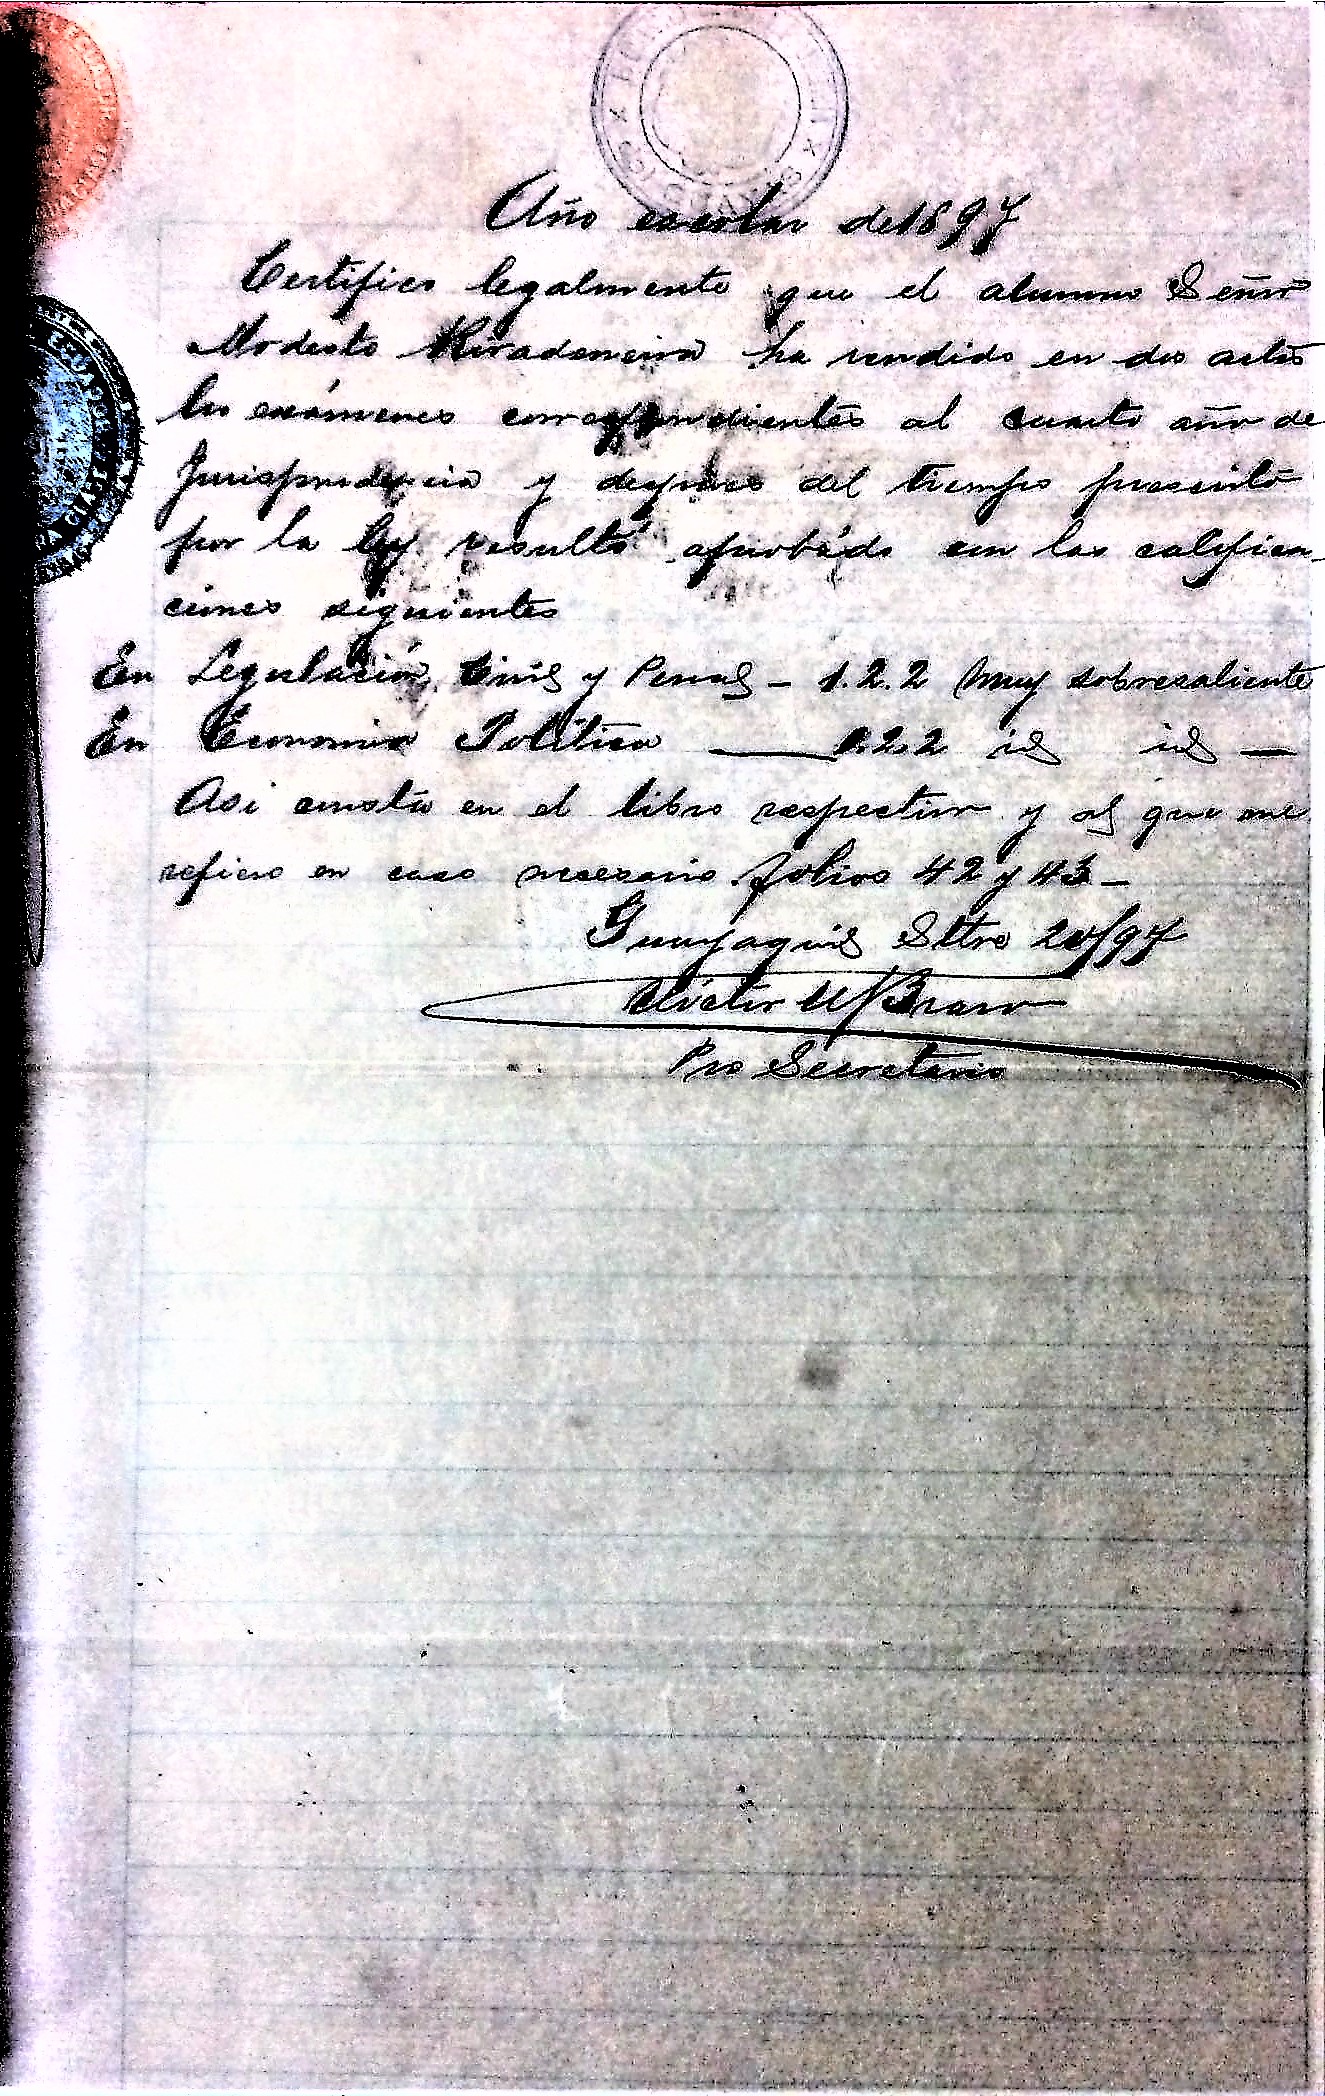 Año escolar de 1897
Certifico legalmente que el alumno Señor
Modesto Rivadeneira ha rendido en dos actos
los exámenes correspondientes al cuarto año de
Jurisprudencia y despues del tiempo prescrito
por la ley resultó aprobado con las califica-
ciones siguientes
En Legislación, Civil y Penal - 1.2.2 Muy sobresaliente
En Economia Política — 1.2.2 id id —
Asi consta en el libro respectivo y al que me
refiero en caso necesario folios 42 y 43 -
Guayaquil Stbre 20/97
Victor M Bravo
Pro Secretario